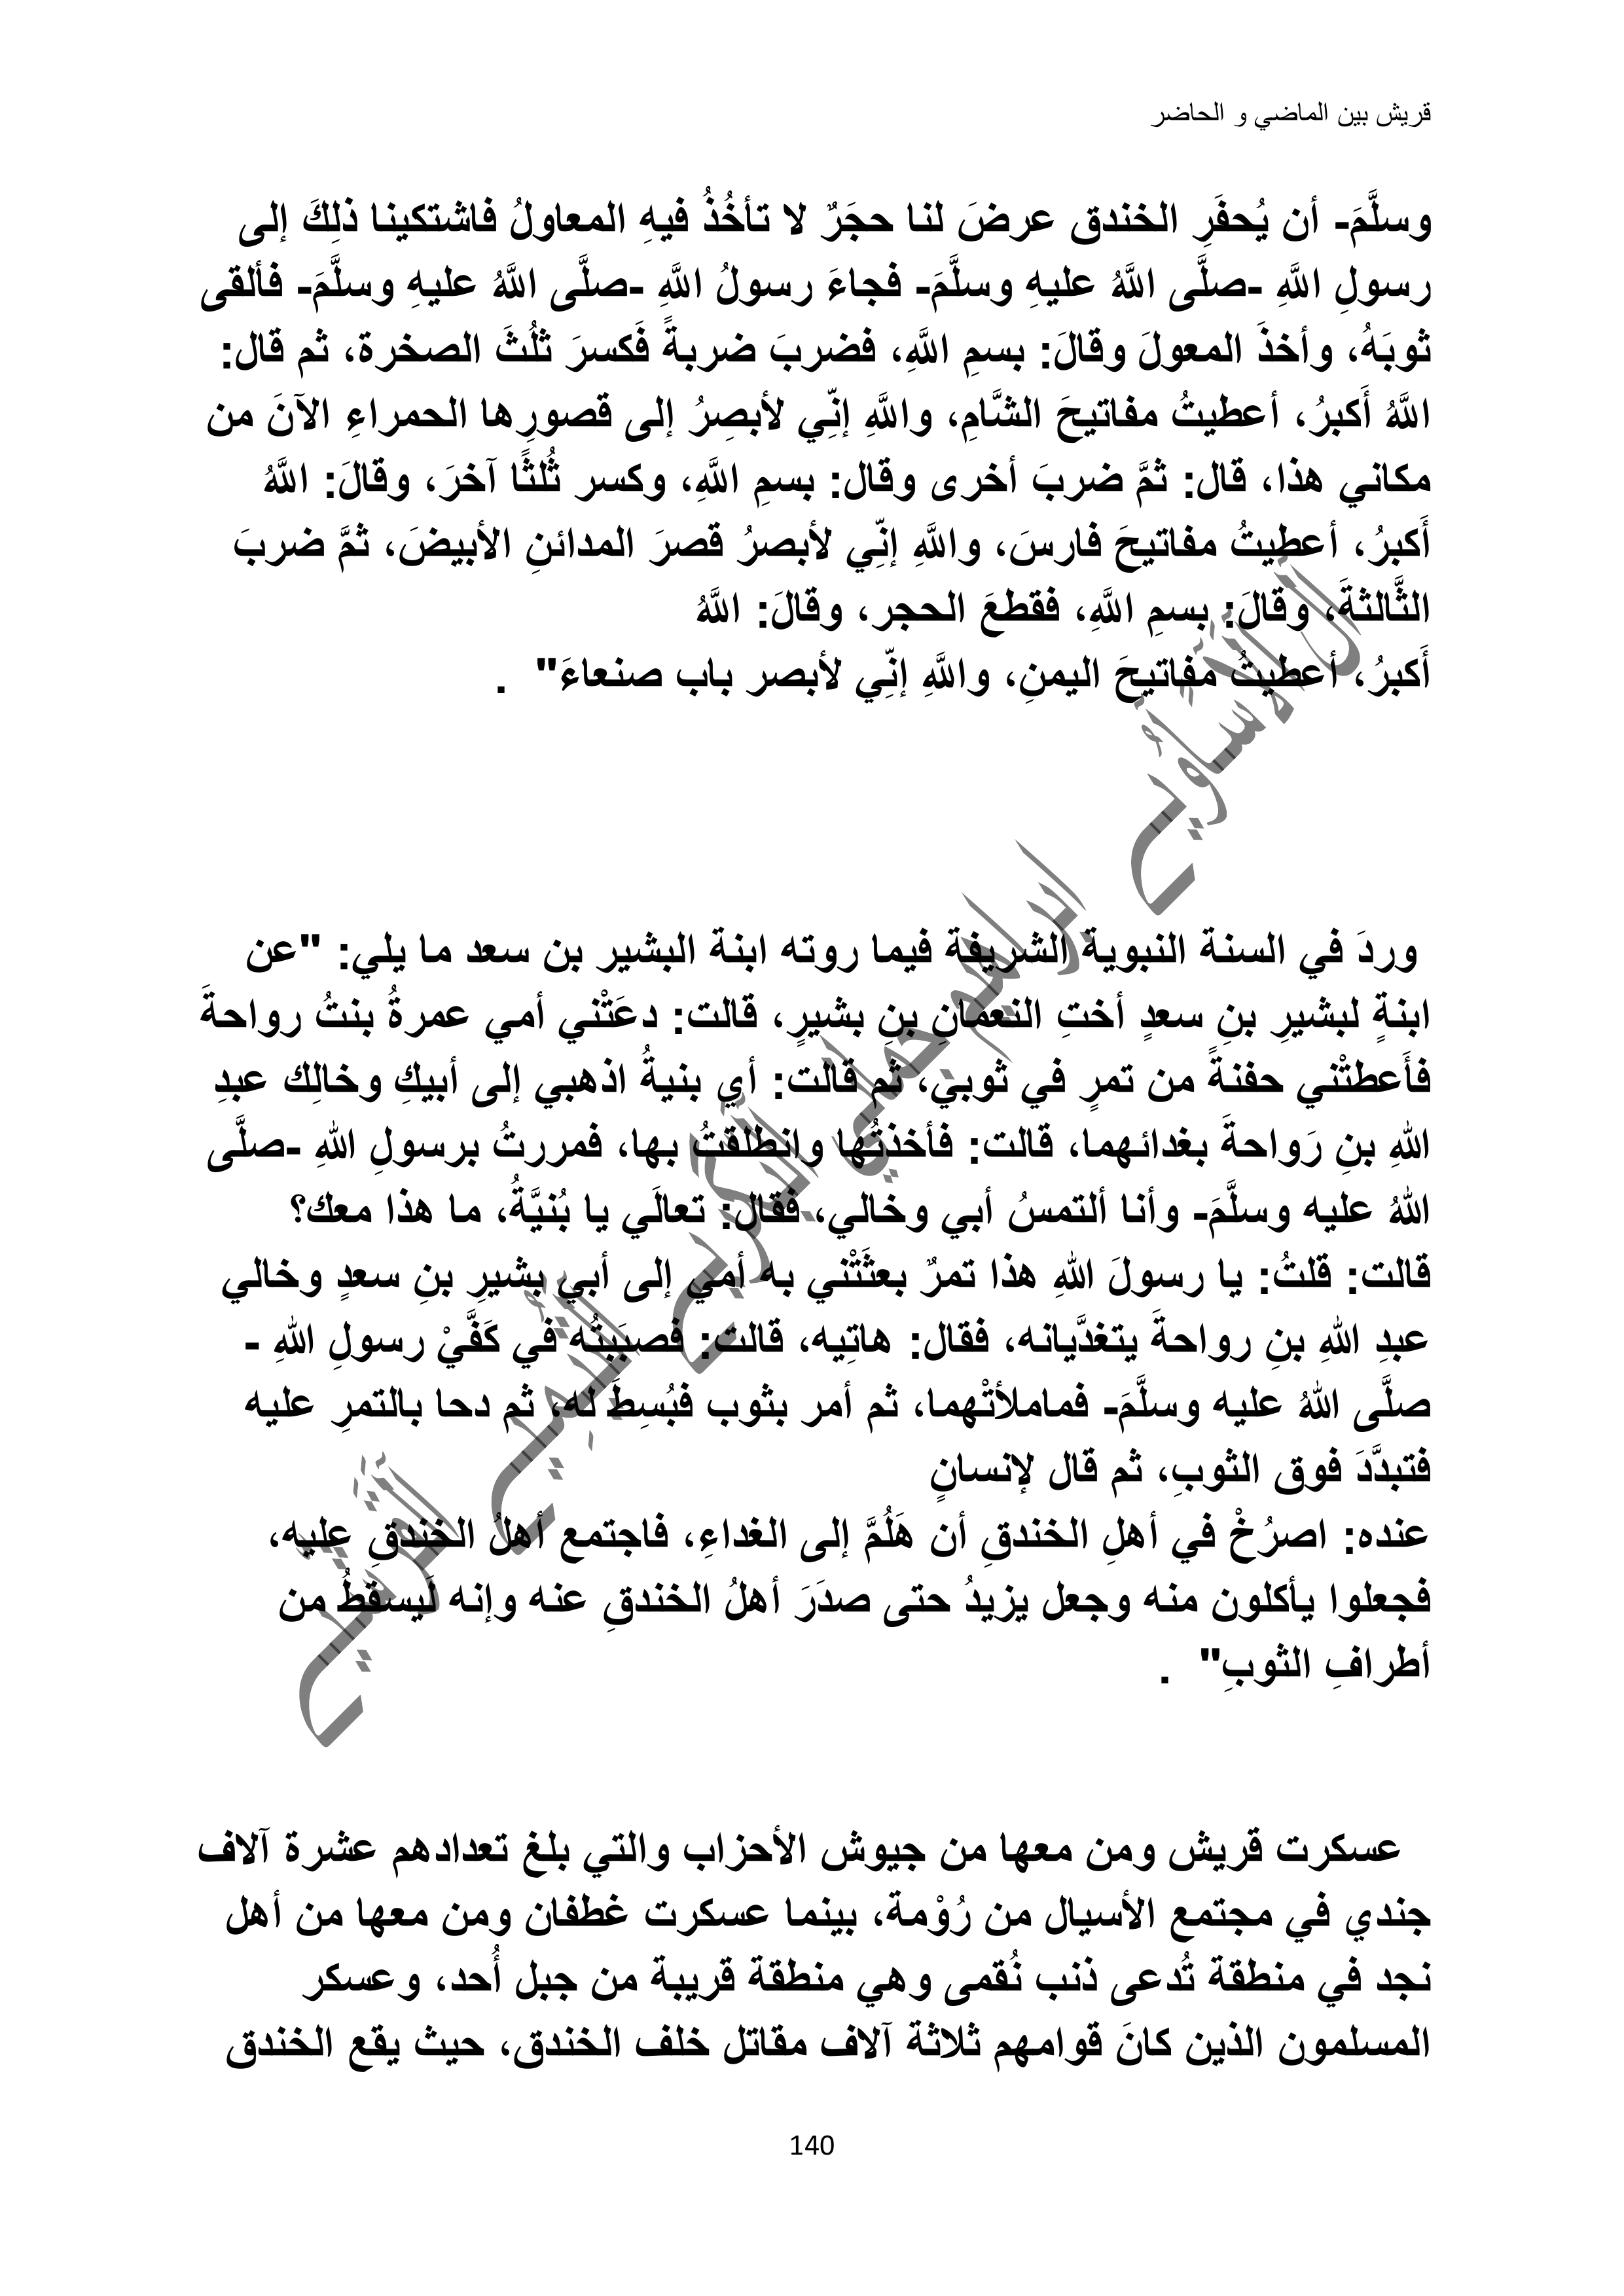 قريش بين الماضي و الحاضر
وسلَّمَ- أن يُحفَرِ الخندق عرضَ لنا حجَرٌ لا تأخُذُ فيهِ المعاولُ فاشتكينا ذلِكَ إلى
رسولِ اللَّهِ -صلَّى اللَّهُ عليهِ وسلَّمَ- فجاءَ رسولُ اللَّهِ -صلَّى اللَّهُ عليهِ وسلَّمَ- فألقى
ثوبَهُ، وأخذَ المعولَ وقالَ: بسمِ اللَّهِ، فضربَ ضربةً فَكسرَ ثلُثَ الصخرة، ثم قال:
اللَّهُ أَكبرُ، أعطيتُ مفاتيحَ الشَّامِ، واللَّهِ إنِّي لأبصِرُ إلى قصورِها الحمراءِ الآنَ من
مكاني هذا، قال: ثمَّ ضربَ أخرى وقال: بسمِ اللَّهِ، وكسر ثُلثًا آخرَ، وقالَ: اللَّهُ
أَكبرُ، أعطيتُ مفاتيحَ فارسَ، واللَّهِ إنِّي لأبصرُ قصرَ المدائنِ الأبيضَ، ثمَّ ضربَ
الثَّالثةَ، وقالَ: بسمِ اللَّهِ، فقطعَ الحجر، وقالَ: اللَّهُ
أَكبرُ، أعطيتُ مفاتيحَ اليمنِ، واللَّهِ إنِّي لأبصر باب صنعاءَ" .
وردَ في السنة النبوية الشريفة فيما روته ابنة البشير بن سعد ما يلي: "عن
ابنةٍ لبشيرِ بنِ سعدٍ أختِ النعمانِ بنِ بشيرٍ، قالت: دعَتْني أمي عمرةُ بنتُ رواحةَ
فأَعطتْني حفنةً من تمرٍ في ثوبي، ثم قالت: أي بنيةُ اذهبي إلى أبيكِ وخالِك عبدِ
اللهِ بنِ رَواحةَ بغدائهما، قالت: فأخذتُها وانطلقتُ بها، فمررتُ برسولِ اللهِ -صلَّى
اللهُ عليه وسلَّمَ- وأنا ألتمسُ أبي وخالي، فقال: تعالَي يا بُنيَّةُ، ما هذا معك؟
قالت: قلتُ: يا رسولَ اللهِ هذا تمرٌ بعثَتْني به أمي إلى أبي بشيرِ بنِ سعدٍ وخالي
عبدِ اللهِ بنِ رواحةَ يتغدَّيانه، فقال: هاتِيه، قالت: فصبَبتُه في كَفَّيْ رسولِ اللهِ -
صلَّى اللهُ عليه وسلَّمَ- فماملأتْهما، ثم أمر بثوب فبُسِطَ له، ثم دحا بالتمرِ عليه
فتبدَّدَ فوق الثوبِ، ثم قال لإنسانٍ
عنده: اصرُخْ في أهلِ الخندقِ أن هَلُمَّ إلى الغداءِ، فاجتمع أهلُ الخندقِ عليه،
فجعلوا يأكلون منه وجعل يزيدُ حتى صدَرَ أهلُ الخندقِ عنه وإنه لَيسقطُ من
أطرافِ الثوبِ" .
عسكرت قريش ومن معها من جيوش الأحزاب والتي بلغ تعدادهم عشرة آلاف
جندي في مجتمع الأسيال من رُوْمة، بينما عسكرت غطفان ومن معها من أهل
نجد في منطقة تُدعى ذنب نُقمى وهي منطقة قريبة من جبل أُحد، وعسكر
المسلمون الذين كانَ قوامهم ثلاثة آلاف مقاتل خلف الخندق، حيث يقع الخندق
140